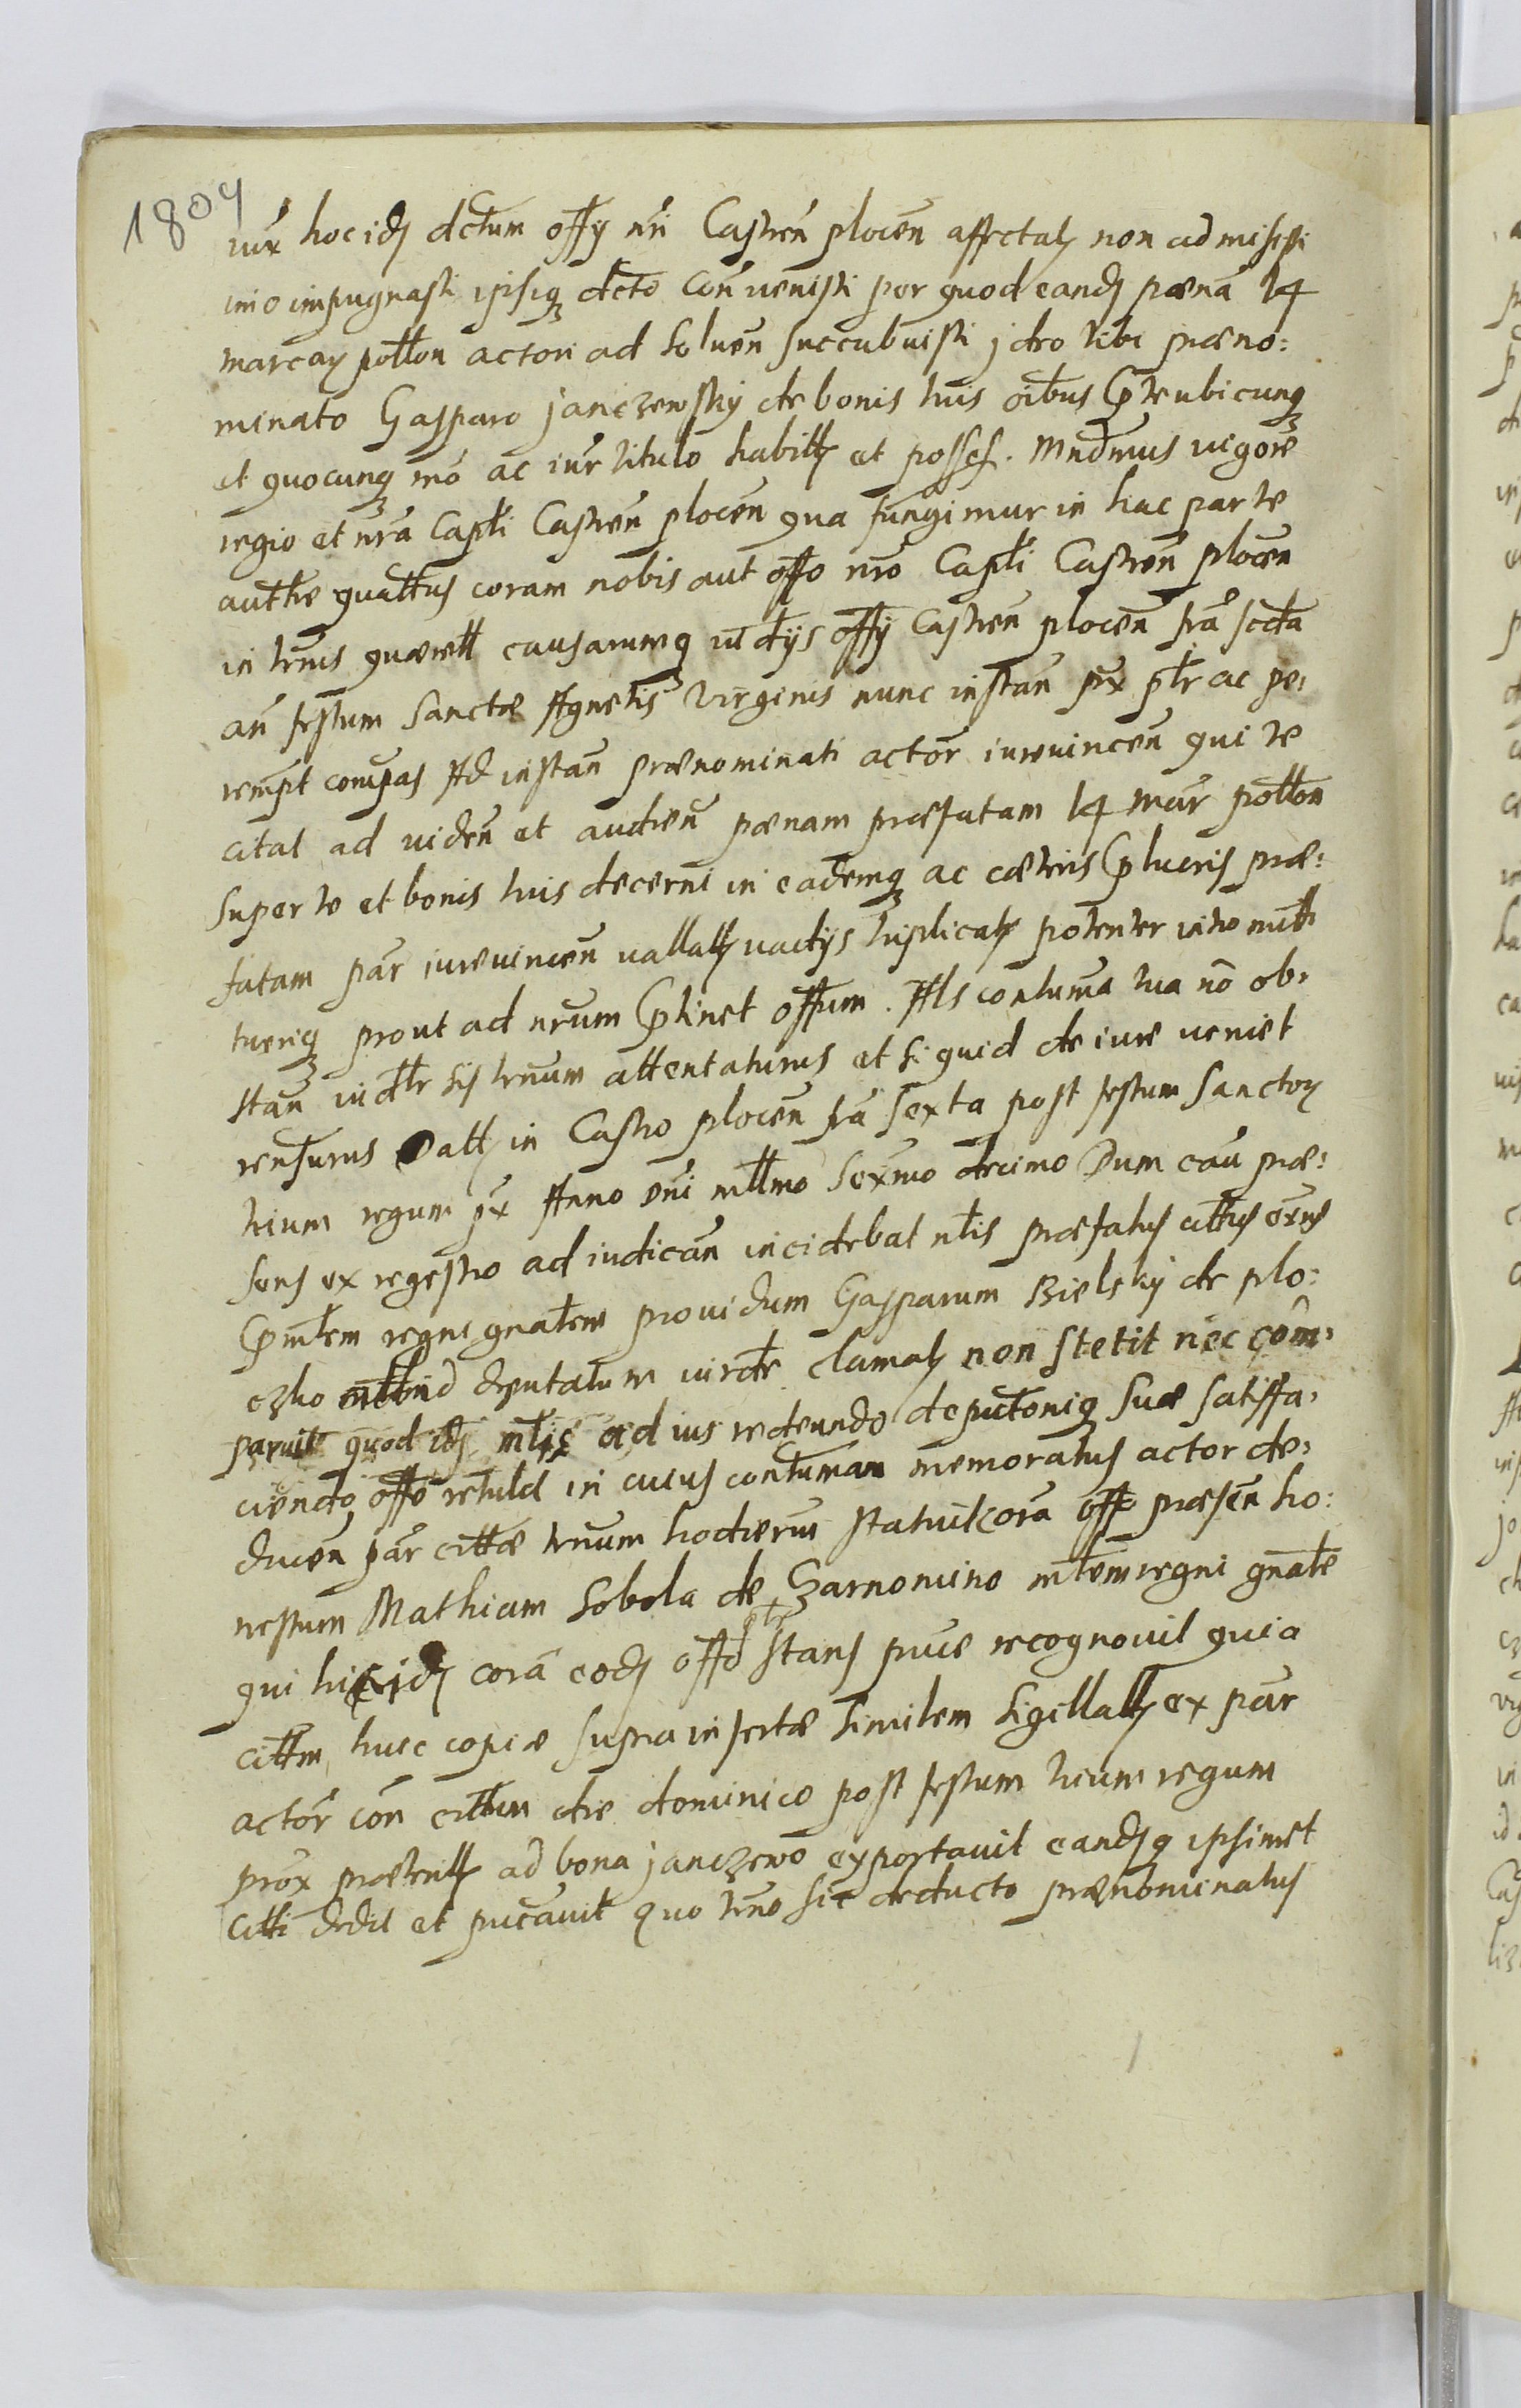 1804
iux hoc idꝫ dctum offy nri Castren plocen affectatꝫ non admisisti
imo impugnasti ipsiqꝫ dcto Con uenisti per quod eandꝫ pænã 14
marcaꝝ pollon actori ad soluen succubuisti jdeo tibi præno:
minato Gasparo janczewsky de bonis tuis oibus te ubicunqꝫ
et quocunqꝫ mõ ac iur titulo habitꝫ et posses. Mndmus uigore
regio et nra Capti Castren plocen qua fungimur in hac parte
authe quattus coram nobis aut offo nro Capti Castren plocen
in trnis quærell causarumqꝫ iudcijs offy Castren plocen fra scda
an festum Sanctæ Agnetis Virginis nunc instan prx ptr ac pe:
rempt compas Ad instan prænominati actor iureuincen qui te
citat ad uiden et audien pænam præfatam 14 mar pollon
super te et bonis tuis decerni in eademqꝫ ac cæteris lucris præ:
fatam par iureuincen uallatꝫ uadijs triplicatꝫ potenter intromitti
tueriqꝫ prout ad nrum tinet offum. Als contuma tua nõ ob:
stan iudtr sis trnum attentaturus et si quid de iure ueniet
rensurus Datt in Castro plocen fra sexta post festum Sanctoꝝ
trium regum prx Anno Dni mllmo Sexmo decimo Dum cau præ:
sens ex regestro ad iudican incidebat nlis præfatus cittus
mtem regni gnatem prouidum Gasparum Bielsky de plo:
czko dputatum iurdte clamatꝫ non stetit nec com:
paruit quod idꝫ mtis ad ius redeundo deputoniqꝫ suæ satissa:
ciendo offo retulit in cuius contumam memoratus actor de:
ducen par cittæ trnum hodiernum statuit corã offo præsen ho:
nestum Mathiam Sobola de Czarnomino mtem regni gnate
qui hic idꝫ corã eodꝫ offo ptr stans pure recognouit quia
cittm huic copiæ supra insertæ similem sigillatꝫ ex par
actor con cittum die dominico post festum trium regum
prox præteritꝫ ad bona janczewo exportauit eandꝫqꝫ ipsimet
citti dedit et pucauit quo trno sic deducto prænominatus